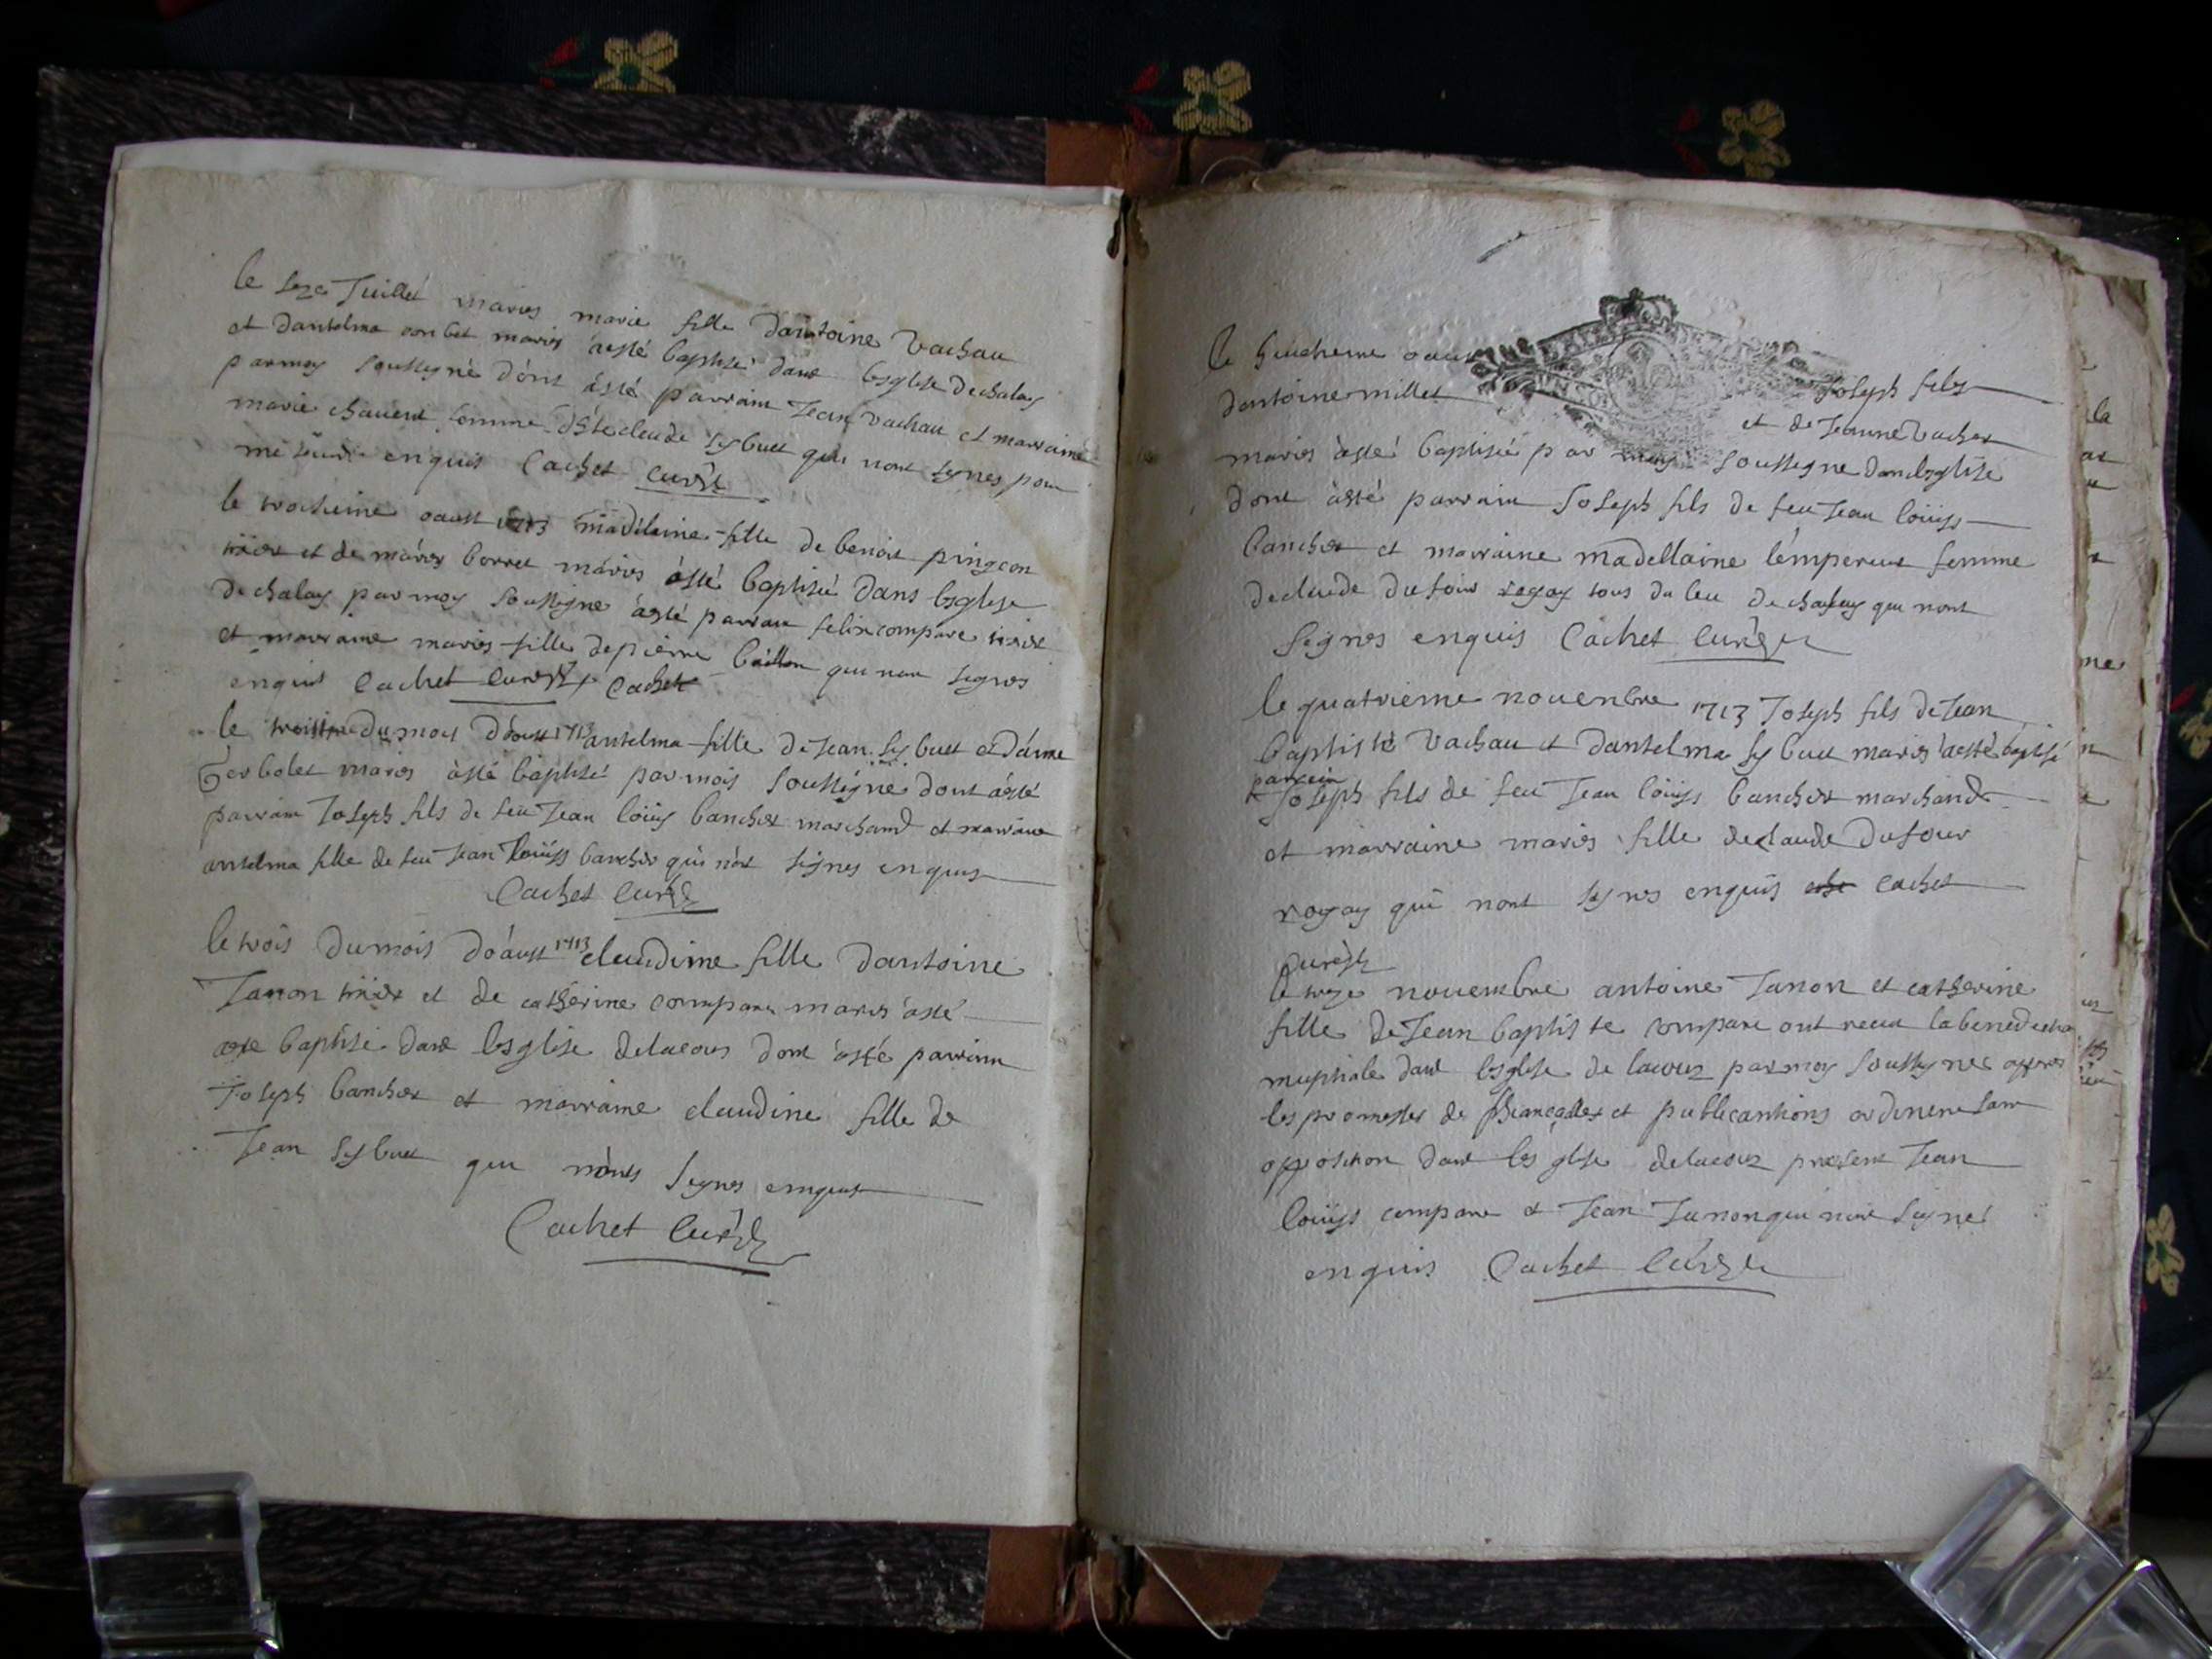 le seze Juillet maries marie fille dantoine Vachau
et dantelma maries aesté baptisé dans lesglise de chalay
parmoy soussigné dónt ásté parrain Jean Vachau et marraine
marie chauent femme claude sybuet qui nont signes pour
enquis Cachet curé
le troisieme oaust 1713 madelaine fille de benoit pingeon
et de marie borret mariés ásté baptisée dans lesglise
de chalay par moy soussigne ásté parrain felix compare
et marraine maries fille de pierre baillon qui non signes
enquis Cachet curé Cachet
le du mois dóoust 1713 antelma fille de Jean sybuet et dánne
gerbolet mares ásté baptisé par mois soussigne dont ásté
parrain Joseph fils de feu Jean loüys banchet marchand et marraine
antelma fille de feu Jean loüiss banchet qui nót signes enquis
Cachet curé
le trois du mois dóaust 1713 claudine fille dantoine
Janon et de catherine compare maries ásté
baptisé dans lesglise delacoux dont ásté parrain
Joseph banchet et marraine claudine fille de
Jean sybuet qui nónts signes enquis
Cachet curé
le oaust Joseph fils
dantoine millet et de Jeanne Vachau
maries ásté baptisée par moy soussigne dans lesglise
dont ásté parrain Joseph fils de feu Jean loüiss
banchet et marraine madellaine lémpereur femme
declaude dufour rogay tous du lieu de chalay qui nont
signes enquis Cachet curé
le quatrieme nouenbre 1713 Joseph fils de Jean
baptiste Vachau et dantelma sybuet maries áesté baptisé
parrain
Joseph fils de feu Jean loüiss banchet marchand
et marraine maries fille declaude dufour
rogay qui nont signes enquis cachet
curé
le treze nouembre antoine Janon et catherine
fille de Jean baptiste compare ont receu la benediction
nuptiale dans lesglise de lacoux par moy soussignes appres
les promesses de fiançalles et publicanthions ordinere sans
opposition dans lesglise delacoux present Jean
loüiss compare et Jean Janon qui nont signé
enquis Cachet curé